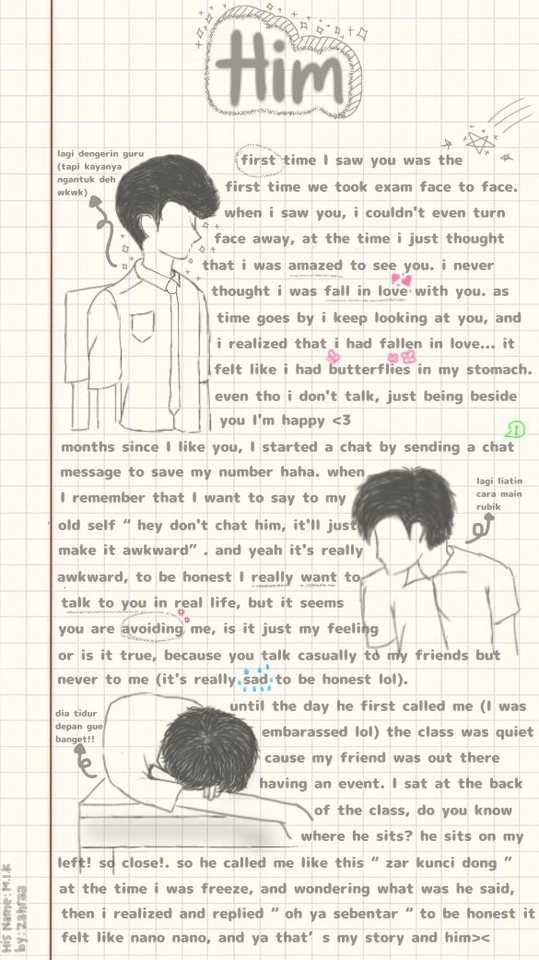 Him
lagi dengerin guru
(tapi kayanya
ngantuk deh
wkwk)
first time I saw you was the
first time we took exam face to face.
when i saw you, i couldn't even turn
face away, at the time i just thought
that i was amazed to see you. i never
thought i was fall in love with you. as
time goes by i keep looking at you, and
i realized that i had fallen in love... it
felt like i had butterflies in my stomach.
even tho i don't talk, just being beside
you I'm happy <3
months since I like you, I started a chat by sending a chat
message to save my number haha. when
I remember that I want to say to my
old self “ hey don't chat him, it'll just
make it awkward” . and yeah it's really
awkward, to be honest I really want to
talk to you in real life, but it seems
you are avoiding me, is it just my feeling
or is it true, because you talk casually to my friends but
never to me (it's really sad to be honest lol).
lagi liatin
cara main
rubik
dia tidur
depan gue
banget!!
until the day he first called me (I was
embarassed lol) the class was quiet
cause my friend was out there
having an event. I sat at the back
of the class, do you know
where he sits? he sits on my
left! so close!. so he called me like this “ zar kunci dong ”
at the time i was freeze, and wondering what was he said,
then i realized and replied “ oh ya sebentar “ to be honest it
felt like nano nano, and ya that’ s my story and him><
His Name: M.I.K
by: Zahraa